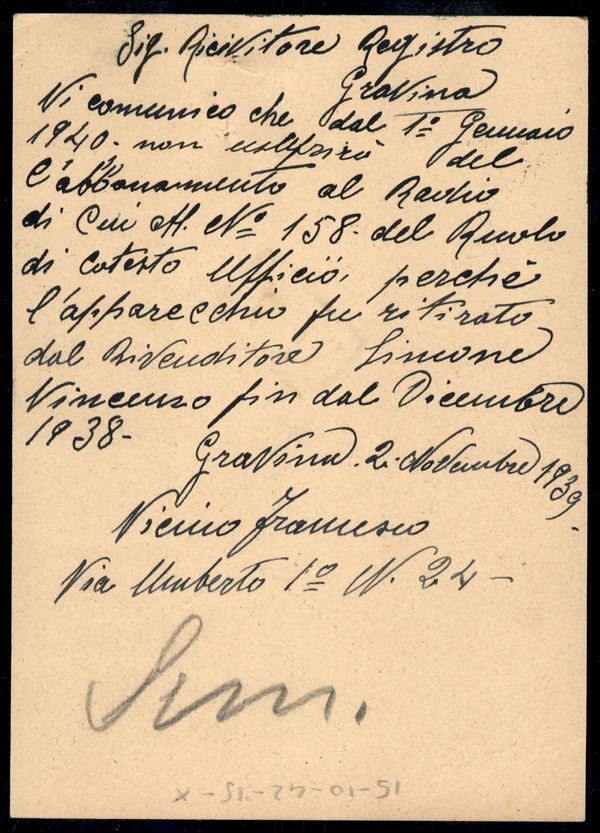 Sig. Ricivitore Registro
Gravina
Vi comunico che dal 1º Gennaio
1940 - non usufrirò del
l'abbonamento al Radio
di cui Al Nº 158 - del Ruolo
di cotesto Ufficio, perchè
l'apparecchio fu ritirato
dal Rivenditore Simone
Vincenzo fin dal Dicembre
1938 -
Gravina. 2. Novembre 1939 -
Vicino Francesco
Via Umberto 1º N. 24 -
15-10-42-15-X